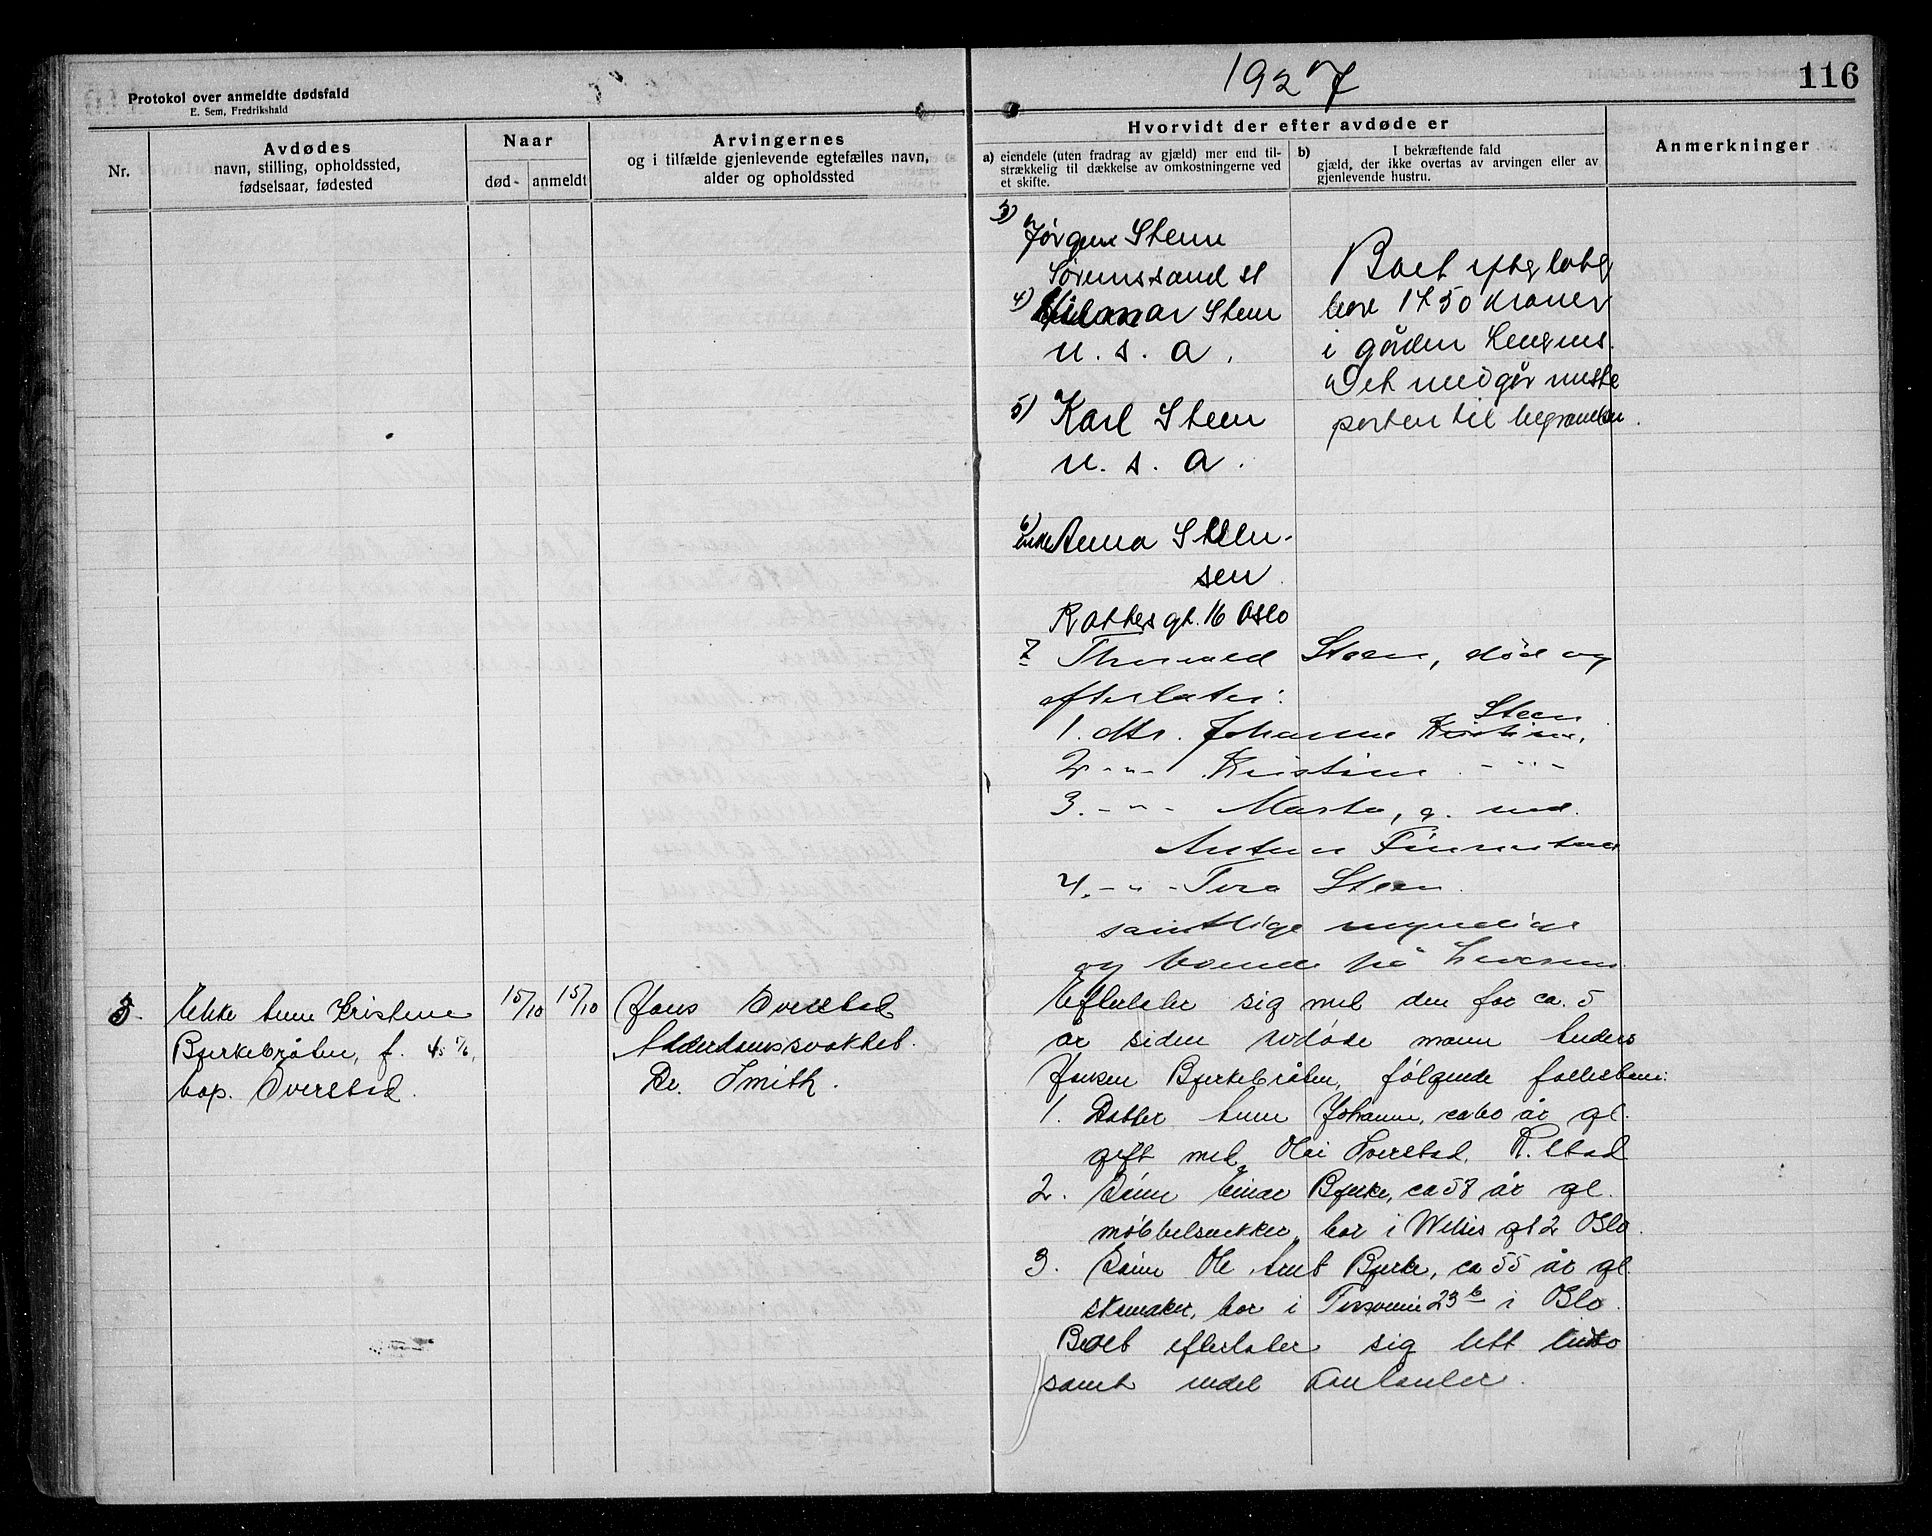 1927
116
Protokol over anmeldte dødsfald
E. Sem, Fredrikshald
Nr.
Avdødes
navn, stilling, opholdssted,
fødselsaar, fødested
Naar
død-
anmeldt
Arvingernes
og i tilfælde gjenlevende egtefælles navn,
alder og opholdssted
Hvorvidt der efter avdøde er
a) eiendele (uten fradrag av gjæld) mer end til-
strækkelig til dækkelse av omkostningerne ved
et skifte.
b) I bekræftende fald
gjæld, der ikke overtas av arvingen eller av
gjenlevende hustru.
Anmerkninger
3) Jørgen Steen
Sørumssand st
4) Hilmar Steen
U. S. A.
5) Karl Steen
U. S. A.
Boet
bare 1750 kroner
i gården
Det medgår meste
parten til begravelsen.
6) enke Anna Steen-
sen
gt. 16 Oslo
7 Thorvald Steen, død og
efterlater:
1. dtr. Johanne Steen
2 - " - Kristine - " -
3. - " - Marta, g. med
Anton
4. - " - Tora Steen.
samtlige myndige
og boende på
3. Enke Anne Kristine
Bjerkebråten, f. 45 1/6,
bop. Overstad.
15/10
15/10
Hans Overstad
Alderdomssvakhet.
Dr. Smith.
Efterlater sig med den for ca. 5
år siden avdøde mann Anders
Hansen Bjerkebråten, følgende fellesbarn:
1. Datter Anne Johanne, ca 60 år gl.
gift med Overstad,
2. Sønn Einar Bjerke, ca 58 år gl.
møbbelsnekker, bor i gt 2 Oslo.
3. Sønn Ole Bjerke, ca 55 år gl.
skomaker, bor i 23 b i Oslo.
Boet efterlater sig litt
samt endel